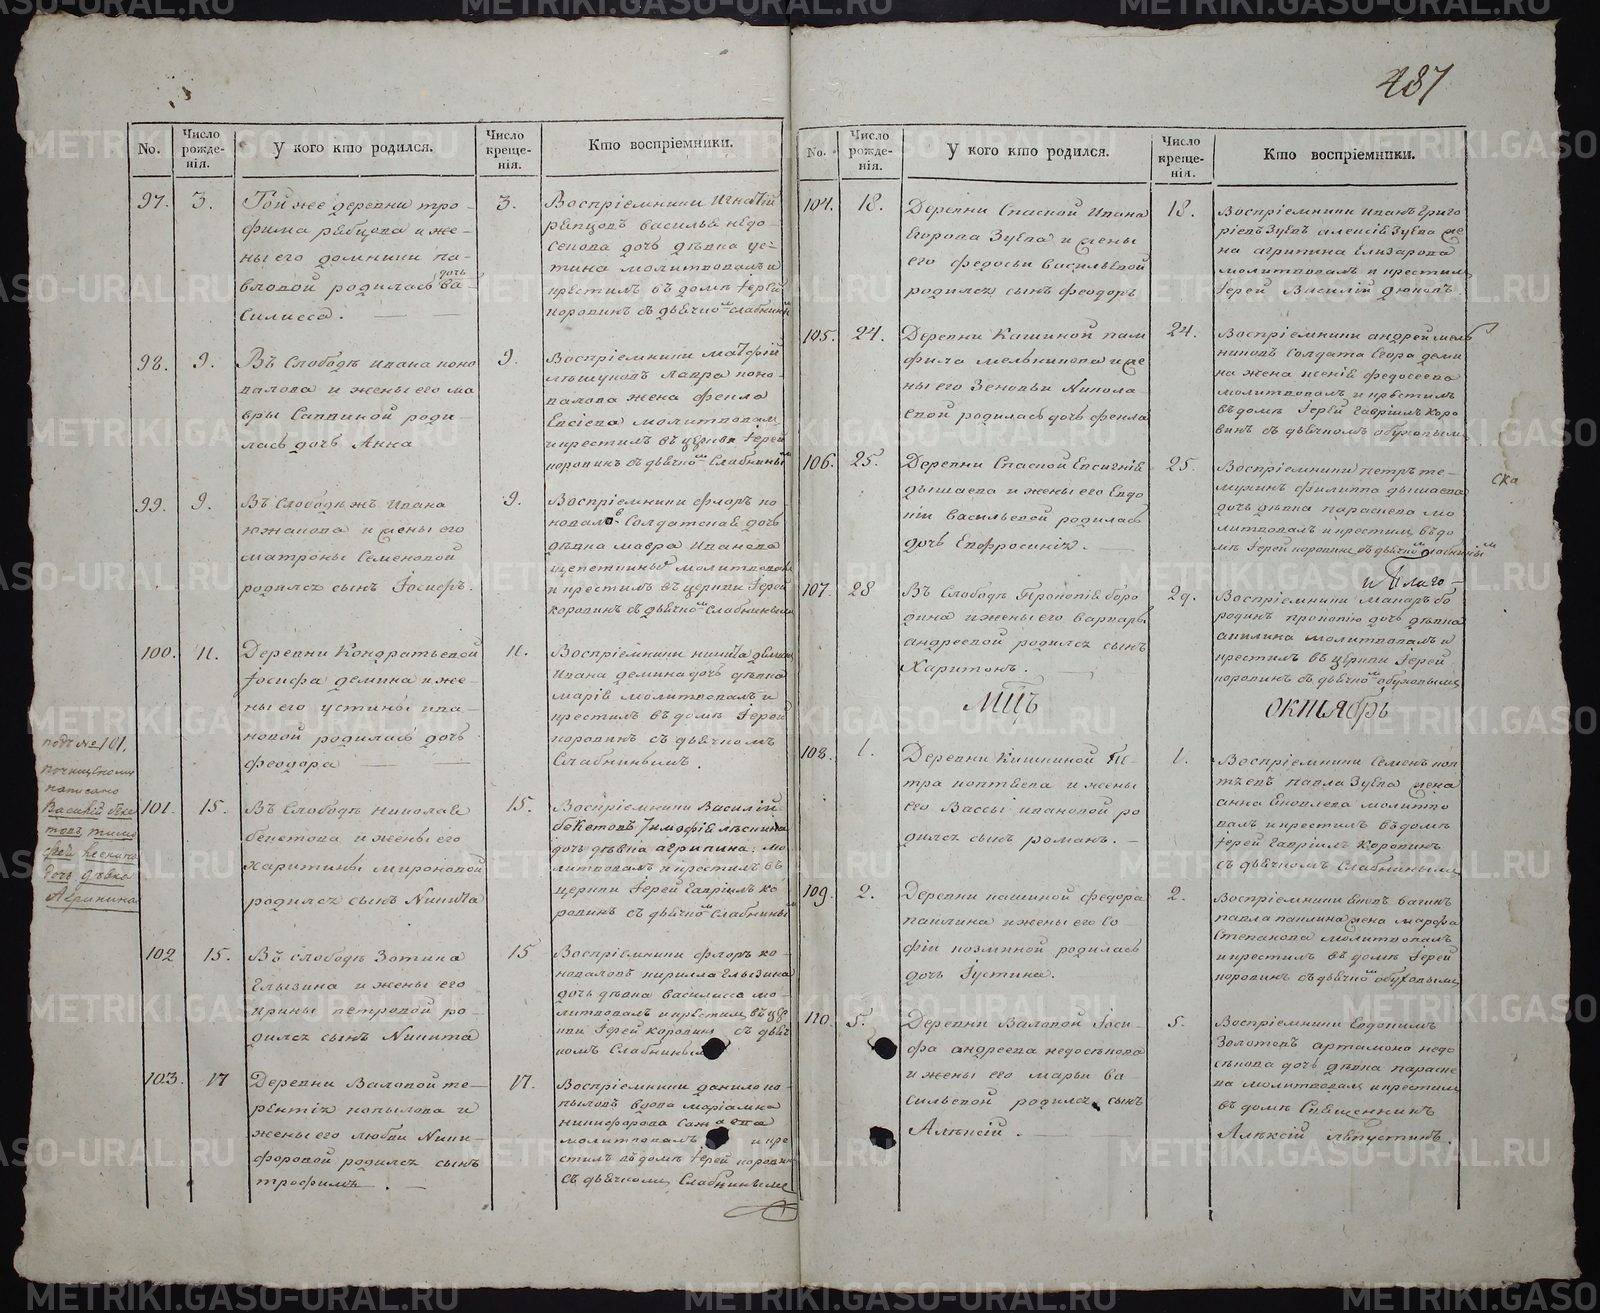 487
No.
Число рожде-
нія.
У кого кто родился.
Число креще-
нія.
Кто воспріемники.
97.
3.
Той же деревни тро-
фима рябцова и же-
ны его домники па-
вловой родилась дочь ва-
силиса.
3.
Воспріемники
дочь дѣвка
молитвовалъ и
крестилъ въ домѣ Іерей
коровинъ съ дьячко^м слабнины^м
98.
9.
Въ Слободѣ ивана коно
валова и жены его ма
вры Саввиной роди-
лась дочь Анна
9.
Воспріемники матфій
лавра коно-
валова жена фекла
молитвовалъ
и крестилъ въ церкви Іерей
коровинъ съ дьячко^м Слабнины^м
99.
9.
Въ Слободѣжъ Ивана
южакова и жены его
матроны Семеновой
родился сынъ Іосифъ.
9.
Воспріемники флоръ ко
новаловъ Солдатская дочь
дѣвка мавра Иванова
молитвовалъ
и крестилъ въ церкви Іерей
коровинъ съ дьячко^м Слабнинымъ
100.
11.
Деревни Кондратьевой
Іосифа демина и же-
ны его устиньи ива-
новой родилась дочь
феодора
11.
Воспріемники никита деминъ
Ивана демина дочь дѣвка
марія молитвовалъ и
крестилъ въ домѣ Іерей
коровинъ съ дьячкомъ
Слабнинымъ.
подъ №101,
почищеному
написано
Василій беке
товъ тимо
фей
дочь дѣвка
Агрипина
101.
15.
Въ Слободѣ николая
бекетова и жены его
харитины мироновой
родился сынъ Никита
15.
Воспріемники Василій
бекетовъ Тимофія
дочь дѣвка агрипина. мо
литвовалъ и крестилъ въ
церкви Іерей Гавріилъ ко
ровинъ съ дьячко^м Слабнины^м
102
15.
Въ слободѣ Зотика
Глызина и жены его
ирины петровой ро-
дился сынъ Никита
15
Воспріемники флоръ ко-
новаловъ кирилла Глызина
дочь дѣвка василисса мо-
литвовалъ и крестилъ въ цер
кви Іерей коровинъ съ дьяч
комъ Слабнинымъ
103.
17
Деревни Валовой те-
рентія копылова и
жены его любви Ники-
форовой родился сынъ
трофимъ.
17.
Воспріемники данило ко-
пыловъ вдова маріамна
никифорова
молитвовалъ и кре
стилъ въ домѣ Іерей коровинъ
съ дьячкомъ Слабнинымъ
No.
Число рожде-
нія.
У кого кто родился.
Число креще-
нія.
Кто воспріемники.
104.
18.
Деревни Спаской Ивана
Егорова Зуева и жены
его федосьи васильевой
родился сынъ феодоръ
18.
Воспріемники иванъ григо
ріевъ Зуевъ алексія Зуева же
на агрипина Елизарова
молитвовалъ и крестилъ
Іерей Василій дюковъ.
105.
24.
Деревни Кашиной пам
фила мельникова и же
ны его Зеновьи Никола
евой родилась дочь фекла
24.
Воспріемники андрей мель
никовъ Солдата Егора деми
на жена ксенія федосеева
молитвовалъ и крестилъ
въ домѣ Іерей Гавріилъ коро
винъ съ дьячкомъ обуховымъ
106.
25.
Деревни Спаской Евсигнія
дышаева и жены его Евдо
кіи васильевой родилась
дочь Евфросинія.
25.
Воспріемники петръ те-
филиппа дышаева
дочь дѣвка параскева мо
литвовалъ и крестилъ въ до
мѣ Іерей коровинъ съ дьячко^м слабнины^м
ска
107.
28
Въ Слободѣ Прокопія боро
дина и жены его варвары
андреевой родился сынъ
Харитонъ.
29.
Воспріемники макаръ бо
родинъ
дочь дѣвка
акилина молитвовалъ и
крестилъ въ церкви Іерей
коровинъ съ дьячко^м обуховымъ
МЦЪ
ОКТЯбрь
108.
1.
Деревни Кишкиной Пе-
тра коптяева и жены
его Вассы ивановой ро
дился сынъ романъ.
1.
Воспріемники Семенъ коп
тяевъ павла Зуева жена
анна Яковлева молитво
валъ и крестилъ въ домѣ
Іерей Гавріилъ Коровинъ
съ дьячкомъ Слабнинымъ
109
2.
Деревни кашиной федора
паклина и жены его Со
фіи козминой родилась
дочь Іустина.
2.
Воспріемники Яковъ
павла паклина жена марфа
Степанова молитвовалъ
и крестилъ въ домѣ Іерей
коровинъ съ дьячко^м обуховымъ
110
5.
Деревни Валовой Іоси-
фа андреева недосѣкова
и жены его марьи ва-
сильевой родился сынъ
Алексій.
5.
Воспріемники Евдокимъ
Золотовъ артамона недо
сѣкова дочь дѣвка параске
ва молитвовалъ и крестилъ
въ домѣ Священникъ
Алексій лепустинъ.